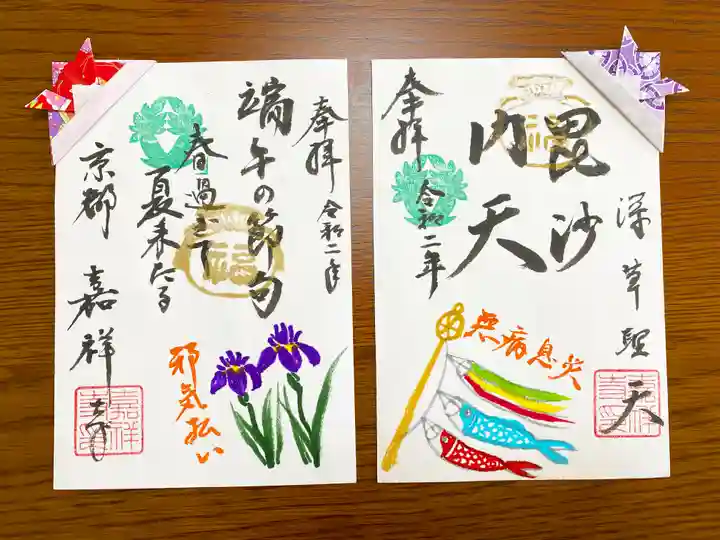 奉拝
令和二年
端午の節句
春過ぎて
夏来たる
京都 嘉祥寺
邪気払い
嘉祥
奉拝
令和二年
毘沙
門天
深草聖天
無病息災
福
福